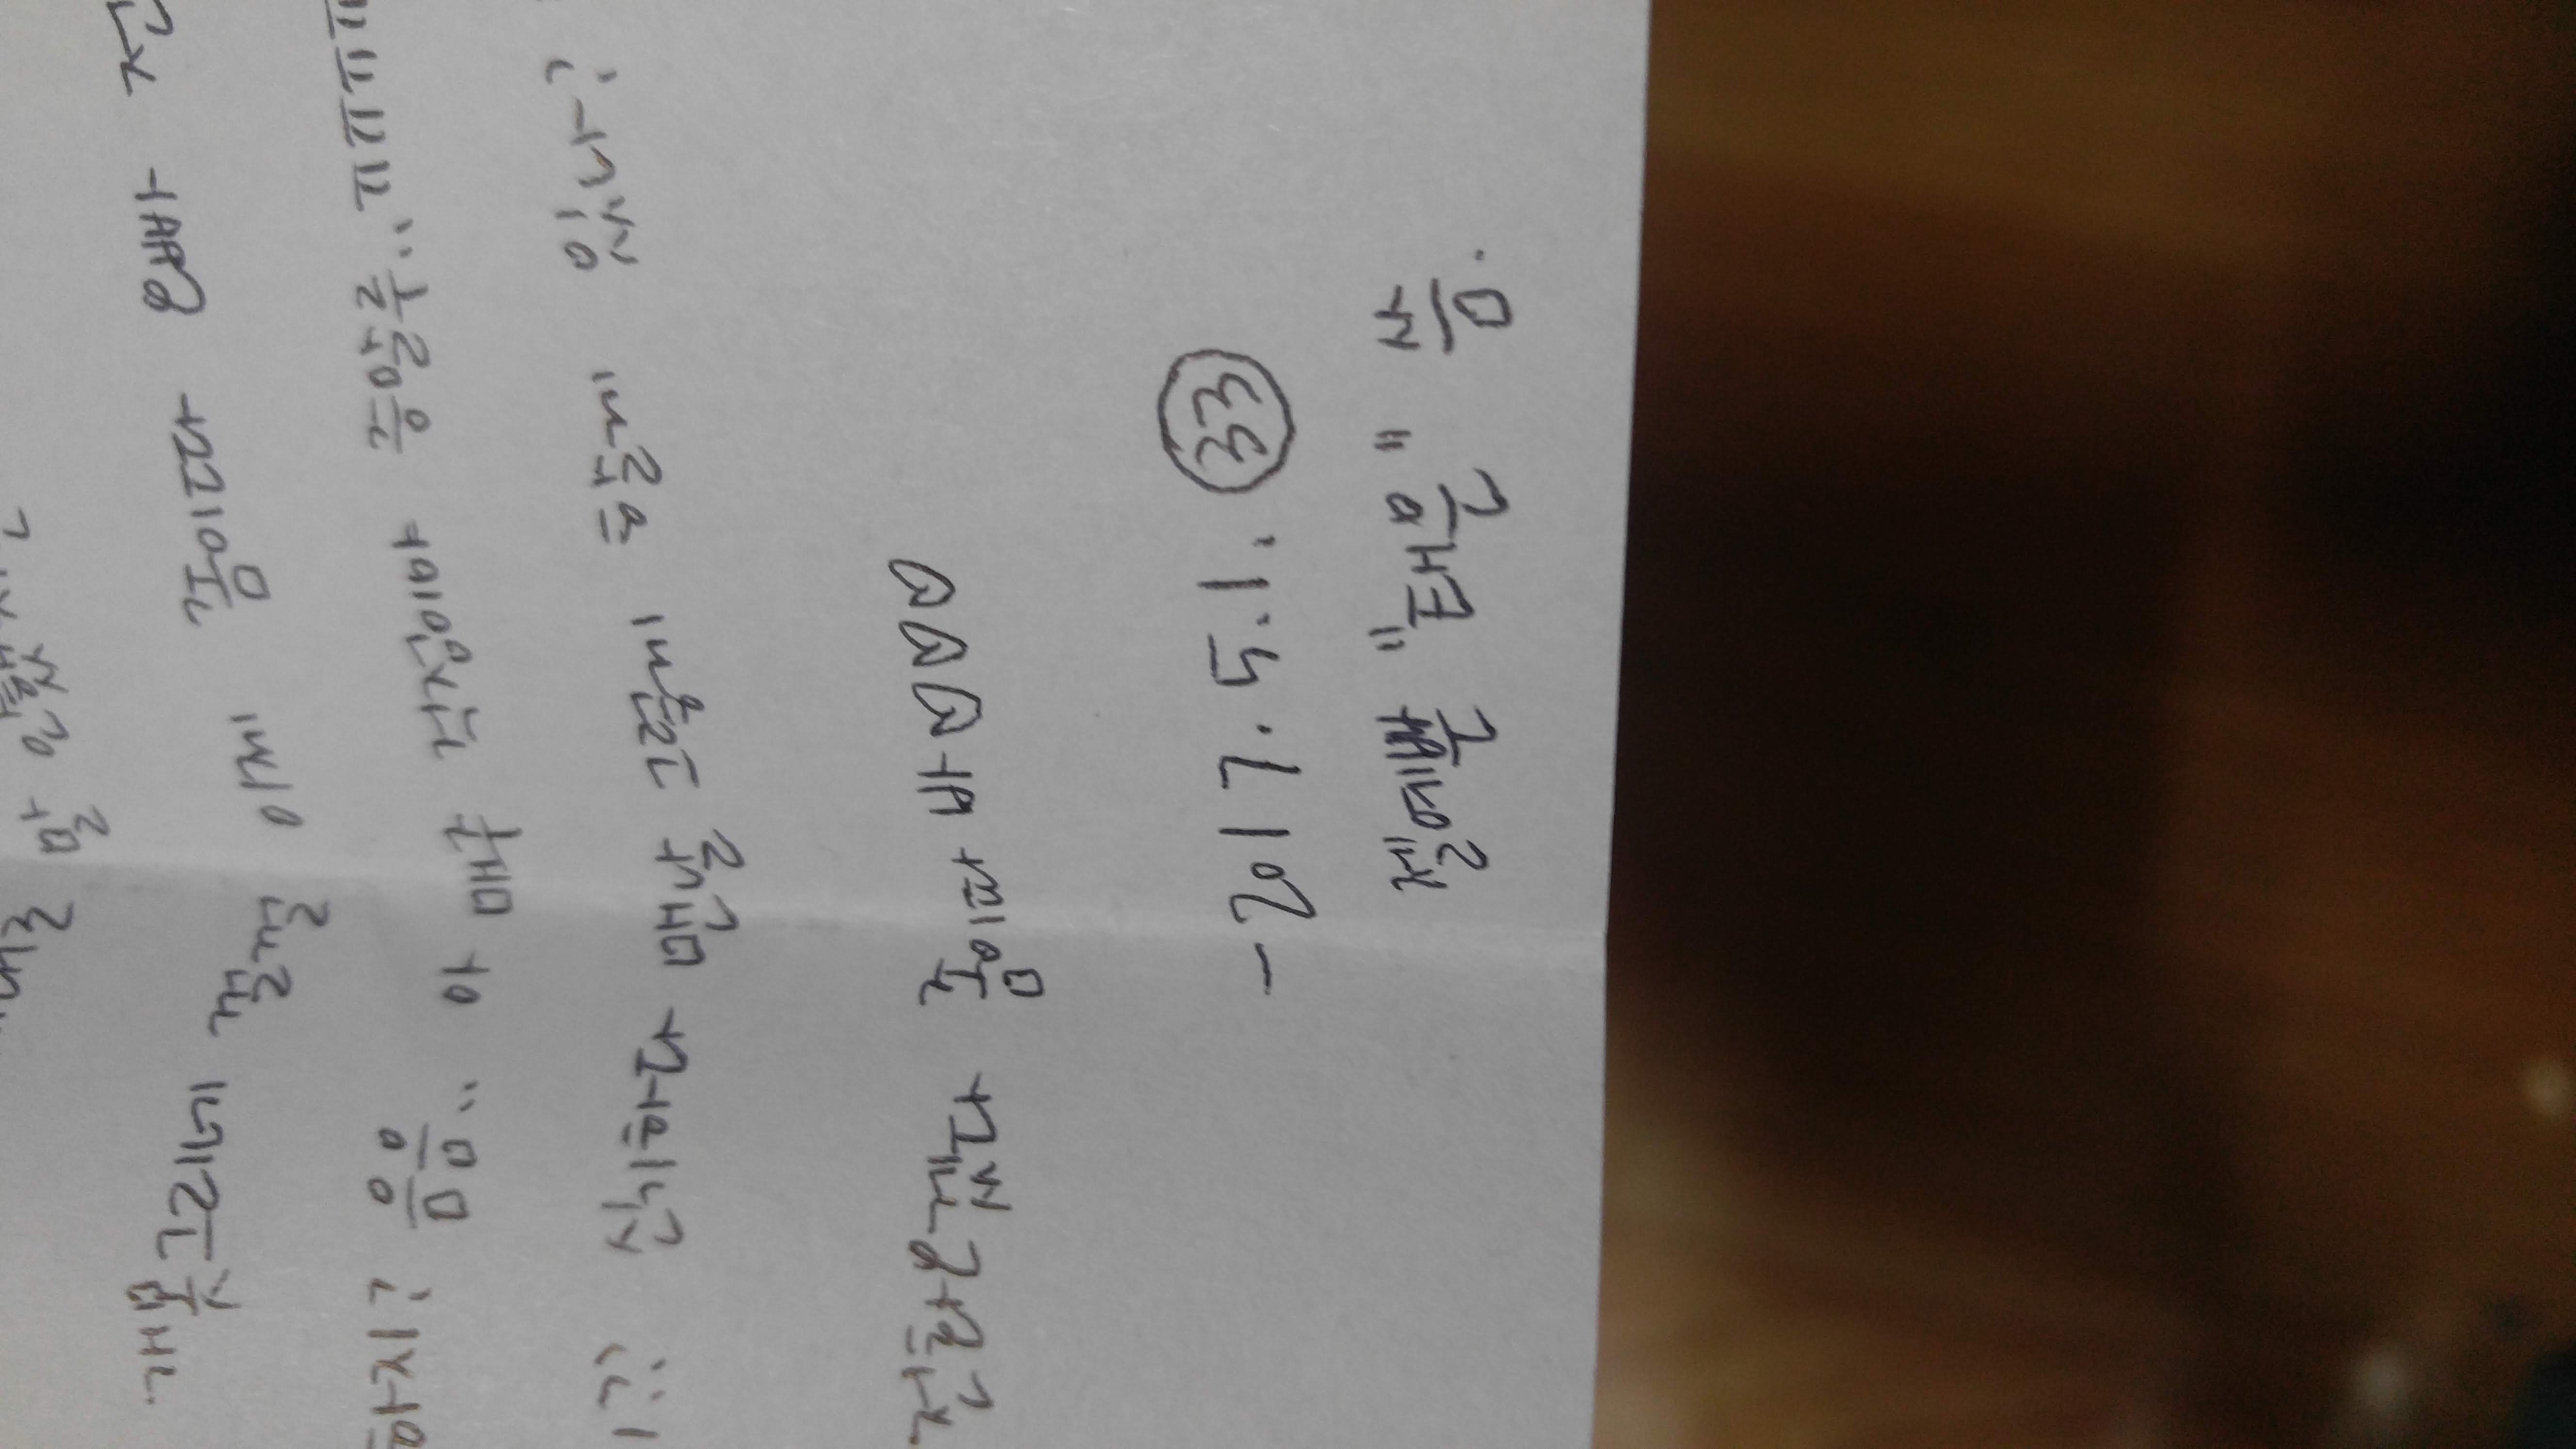 말 안했
개못그리네 껄껄 이제 좀이따 오빠 전
하지? 음음.. 아 매주 걱정이야 증말루..ㅠㅠㅠㅠ
?? 신기하다 맨날 그렇게 할게 있나?
전화오겠다 좀이따 바♡♡♡
-2017.5.1. ㉝
젤예쁜 "태은" 씀.